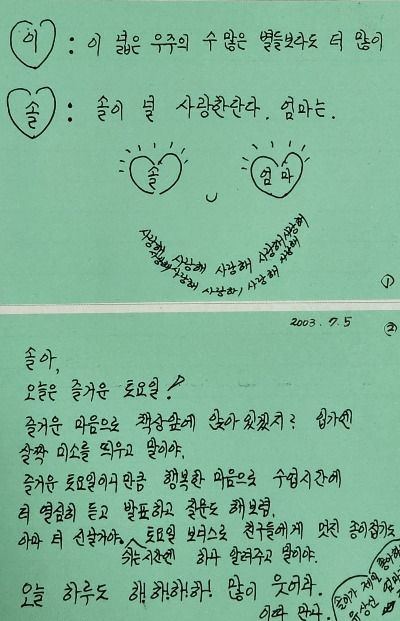 이 : 이 넓은 우주의 수 많은 별들보다도 더 많이
솔 : 솔이 널 사랑한단다. 엄마는.
솔 엄마
사랑해 사랑해 사랑해 사랑해 사랑해
사랑해 사랑해 사랑해 사랑해 사랑해
①
2003. 7. 5 ②
솔아,
오늘은 즐거운 토요일!
즐거운 마음으로 책상앞에 앉아 있겠지? 입가엔
살짝 미소를 띄우고 말이야.
즐거운 토요일이니만큼 행복한 마음으로 수업시간에
더 열심히 듣고 발표하고 질문도 해 보렴.
아마 더 신날거야. 토요일 보너스로 친구들에게 멋진 종이접기도
쉬는시간엔 하나 알려주고 말이야.
오늘 하루도 하!하!하!하! 많이 웃어라.
이따 만나.
솔이가 제일